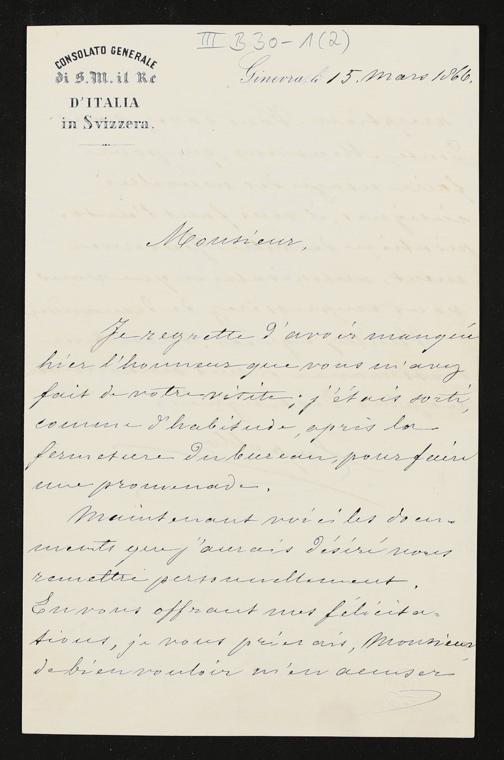 III B 30-1(2)
CONSOLATO GENERALE
di S. M. il Re
D'ITALIA
in Svizzera.
Ginevra, le 15. Mars 1866.
Monsieur,
Je regrette d'avoir manquée
hier l'honneur que vous m'avez
fait de votre visite; j'étais sorti,
comme d'habitude, après la
fermeture du bureau, pour faire
une promenade.
Maintenant voici les docu-
ments que j'aurais désiré vous
remettre personnellement.
En vous offrant mes félicita-
tions, je vous prierais, Monsieur,
de bien vouloir m'en accuser